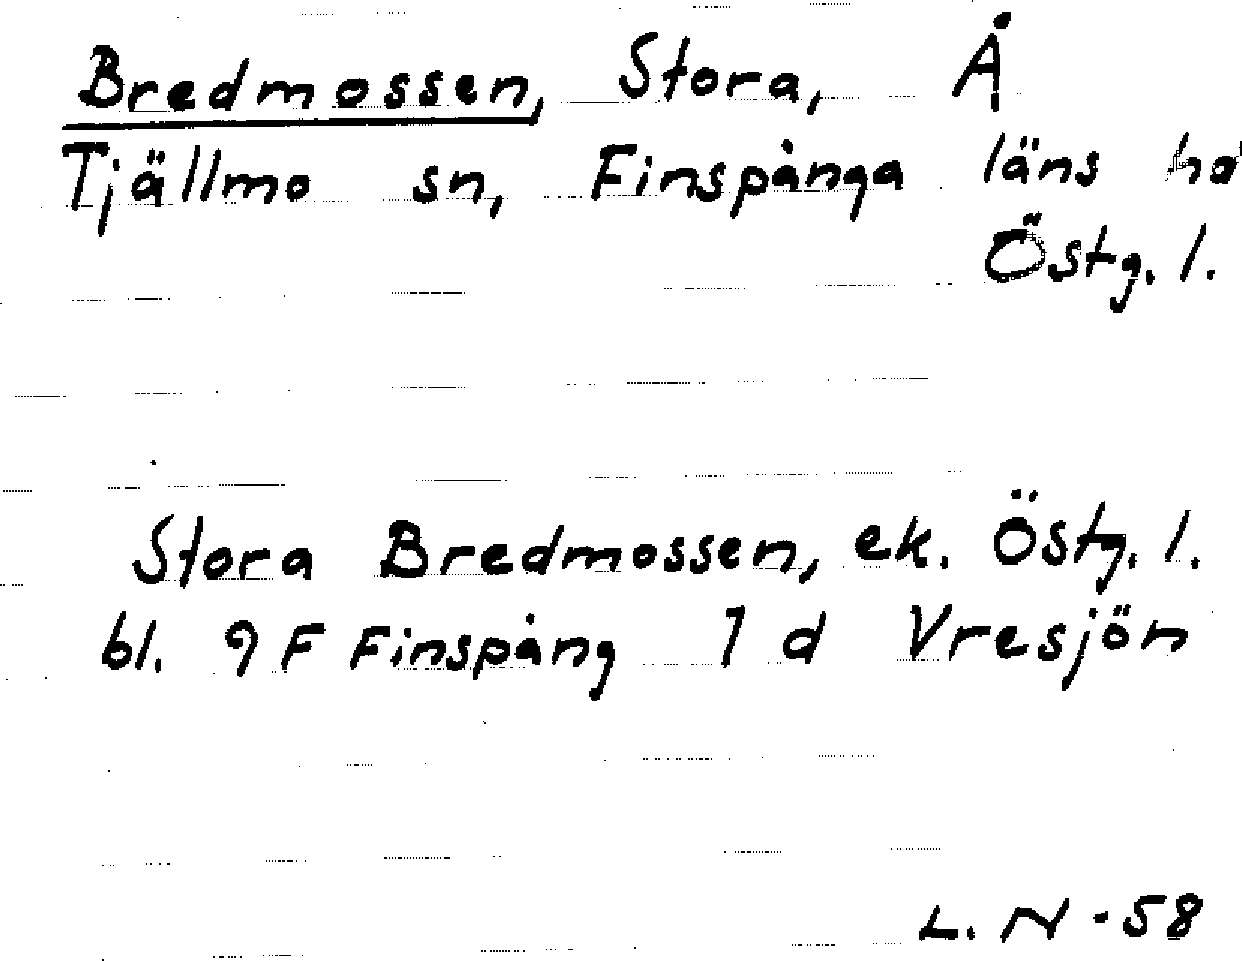 Bredmossen, Stora, Å
Tjällmo sn, Finspånga läns hd
Östg. l.
Stora Bredmossen, ek. Östg. l.
bl. 9 F Finspång 7 d Vresjön
L. N - 58